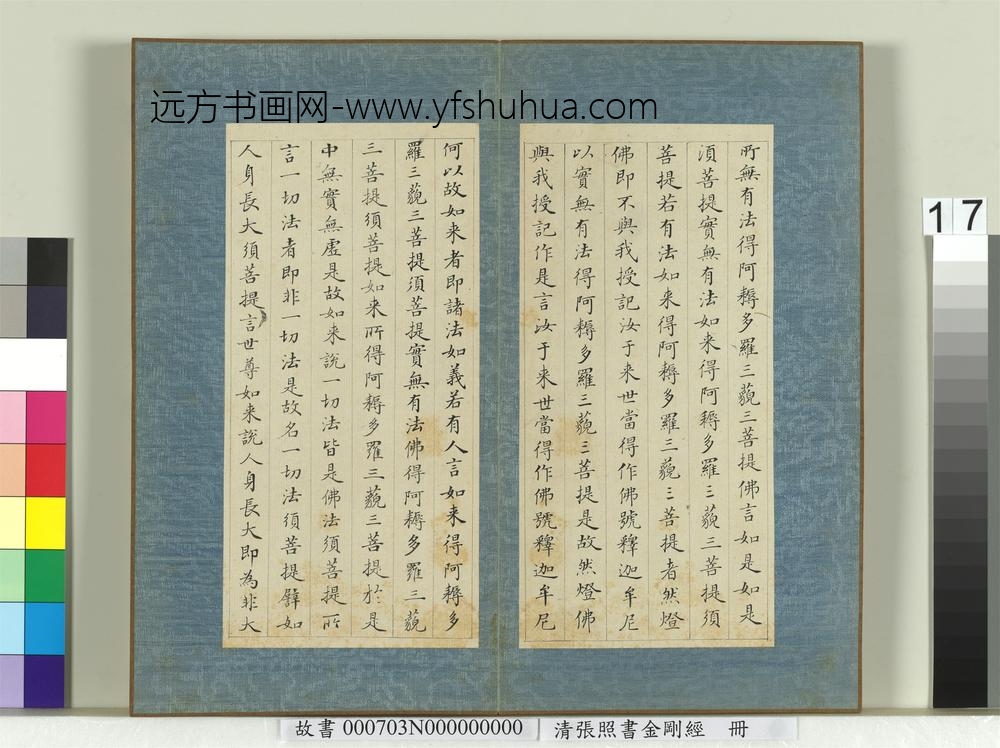 远方书画网-www.yfshuhua.com
所無有法得阿耨多羅三藐三菩提佛言如是如是
須菩提實無有法如来得阿耨多羅三藐三菩提須
菩提若有法如来得阿耨多羅三藐三菩提者然燈
佛即不與我授記汝于来世當得作佛號釋迦牟尼
以實無有法得阿耨多羅三藐三菩提是故然燈佛
與我授記作是言汝于来世當得作佛號釋迦牟尼
何以故如来者即諸法如義若有人言如来得阿耨多
羅三藐三菩提須菩提實無有法佛得阿耨多羅三藐
三菩提須菩提如来所得阿耨多羅三藐三菩提於是
中無實無虛是故如来說一切法皆是佛法須菩提所
言一切法者即非一切法是故名一切法須菩提譬如
人身長大須菩提言世尊如来說人身長大即為非大
17
故書 000703N000000000 清張照書金剛經 冊